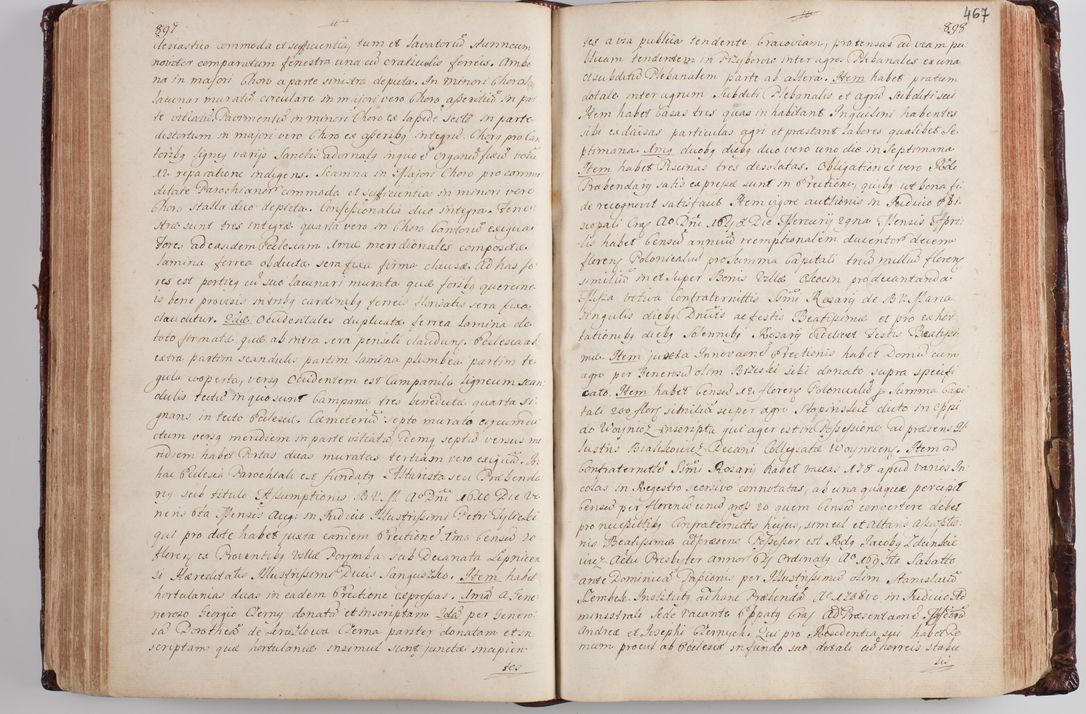 897
clesiastico commoda et sufficientia, tum et lavatoriū stanneum
noviter comparatum fenestra una cū craticulis ferreis. Ambo
na in majori Choro a parte sinistra depicta. In minori Choro
lacunar muratū circulare in majori vero Choro asseritiū in par
te vitiatū Pavimentū in minori Choro ex lapide secto in parte
distortum in majori vero Choro ex asseribg integrū. Chorg pro Can
toribg ligneg varijs Sanctis adornatg in quo ē organū fixū votū
12. reparatione indigens. Scamna in Majori Choro pro commo
ditate Parochianor commoda et sufficientia in minori vero
Choro stalla duo depicta. Confessionalia duo integra. Fenes
træ sunt tres integræ quarta vero in Choro Cantorū exigua.
Fores ad eandem Ecclesiam 1mæ meridionales compositæ
lamina ferrea obductæ sera fixa firma clausæ. Ad has fo
res est porticg cū suo lacunari murata quæ foribg querceis
is bene provisis in tribg cardinibg ferreis pensatis sera fixa
clauditur. 2dæ Occidentales duplicatæ ferrea lamina de
toto firmatæ quæ ab intra sera pensili claudung. Ecclesia ab
extra partim scandulis partim lamina plumbea partim te
gula cooperta, versg Occidentem est Campanile ligneum scan
dulis tectū in quo sunt Campanæ tres benedictæ quarta si
gnans in tecto Ecclesiæ. Cæmeteriū septo murato circumdu
ctum versg meridiem in parte vitiatū. Idemg septū versus me
ridiem habet Portas duas muratas tertiam vero exiguā. In
hac Ecclesia Parochiali est fundatg Altarista seu Præbenda
rig sub titulo Assumptionis B. V. M. Ao Dni 1620 Die Ve
neris 6ta Mensis Augi in Judicio Illustrissimi Petri Tylicki
qui pro dote habet juxta eandem Erectionē. 1mo Censū 20
floreng ex Proventibg Villæ Porymba sub Decanatu Lipnicen
si Hæreditatis Illustrissimi Ducis Sanguszko. Item habet
hortulanias duas in eadem Erectione expressas. 1mā a Gene
neroso Georgio Czerny donatā et inscriptam 2dā per Generi
sā Dorotheā de Czerna pariter donatam et in
scriptam quæ hortulaniæ insimul sunt junctæ incipien
tes

467
898
tes a via publica tendente Cracoviam, protensas ad viam pu
blicam tendentem in Przyborow inter agros Plebanales ex una
et subditū Plebanalem parte ab altera. Item habet pratum
dotale inter agrum Subditi Plebanalis et agrū Subditi sui
Item habet Casas tres quas inhabitant Inquilini habentes
sibi exdivisas particulas agri et præstant labores qualibet Se
ptimana. 1mg duobg diebg duo vero uno die in Septimana
Item habet Piscinas tres desolatas. Obligationes vero Rdi
Præbendarij satis expressæ sunt in Erectione, quibg ut bona fi
de recognovit satisfacit. Item vigore auctionis in Judicio Epi
scopali Crac Ao Dni 1672 Die Mercurij 29na Mensis Apri
lis habet Censū annuū reemptionalem ducentor decem
floreng Polonicalium pro summa Capitali triū millium florenɡ
similiū in et super Bonis Villæ Okocim pro decantanda
Missa votiva Confraternittis Ssmi Rosarij de B. V. Maria
singulis diebg Dnicis ac festis Beatissimæ et pro exhor
tationibg diebg Solennibg Rosarij videlicet Festis Beatissi
mæ. Item juxta Innovatione Erectionis habet Domū cum
agro per Generosū olim Brzeski sibi donato supra specifi
cato. Item habet Censū 12 florenɡ Polonicaliū a Summa Capi
tali 200 flor similiū super agro Stopinskie dicto in Oppi
do Woynicz inscripta qui ager est in Possessione ad præsens Il
lustris Bialikowicz Decani Collegiatæ Woynicens. Item ad
Confraternittē Ssmi Rosarij habet vaccas 178 apud varios In
colas in Regestro seorsivo connotatas, ab una quaque percipit
Censū per Florenū unū gros 20 quem Censū convertere debet
pro necessittibg Confraternittis hujus, simul et altaris Assumptio
nis Beatissimæ. Ad præsens Possessor est Rdg Jacobg Zdunkie
wicz Actu Presbyter Annor 67 Ordinatg Ao 1709 Sabatto
ante Dominicā Passionis per Illustrissimū olim Stanislaū
Szembek. Institutg ad hanc Præbendā Ao 1728 in Judicio Ad
ministrali Sede vacante Eppatg Crac ad Præsentatione
Andreæ et Josephi Czernych. Qui pro Residentia sua habet Do
mum procul ab Ecclesia in fundo suo dotali cū horreis stabu
lis